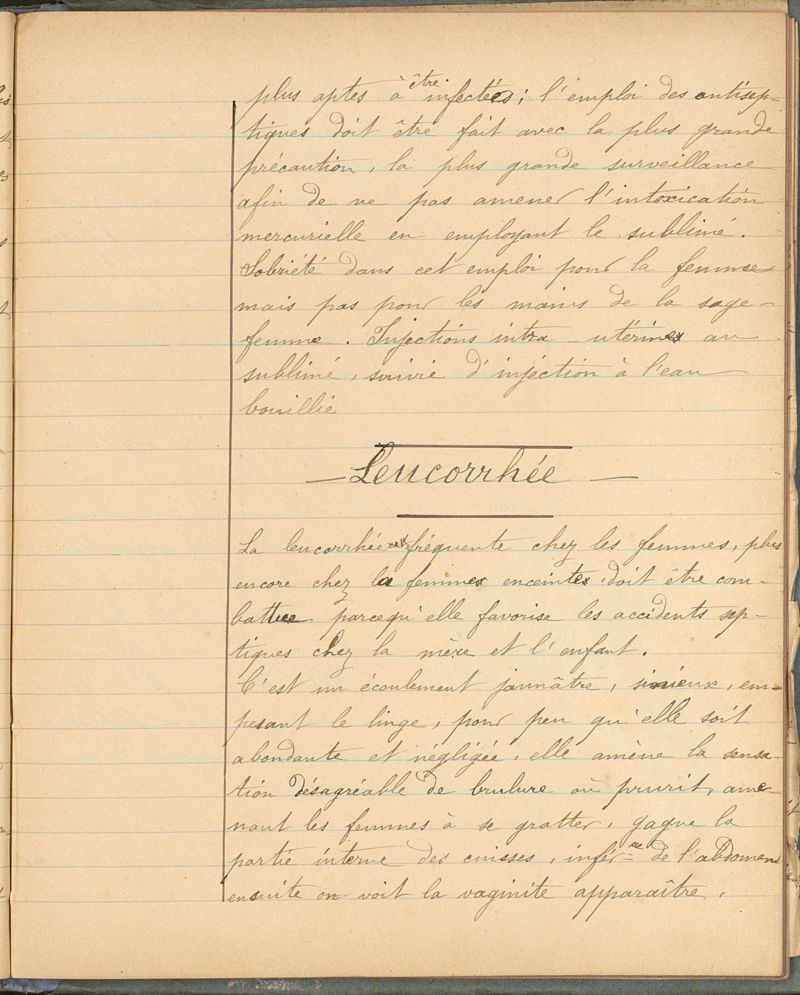 plus aptes à être infectées ; l'emploi des antisep-
tiques doit être fait avec la plus grande
précaution, la plus grande surveillance
afin de ne pas amener l'intoxication
mercurielle en employant le sublimé.
Sobriété dans cet emploi pour la femme
mais pas pour les mains de la sage-
femme. Injections intra-utérines au
sublimé, suivie d'injection à l'eau
bouillie
— Leucorrhée —
La leucorrhée fréquente chez les femmes, plus
encore chez la femme enceinte, doit être com-
battue parcequ'elle favorise les accidents sep-
tiques chez la mère et l'enfant.
C'est un écoulement jaunâtre, em-
pesant le linge, pour peu qu'elle soit
abondante et négligée, elle amène la sensa-
tion désagréable de brulure ou prurit, ame-
nant les femmes à se gratter, gagne la
partie interne des cuisses, infér=re de l'abdomen
ensuite on voit la vaginite apparaître.